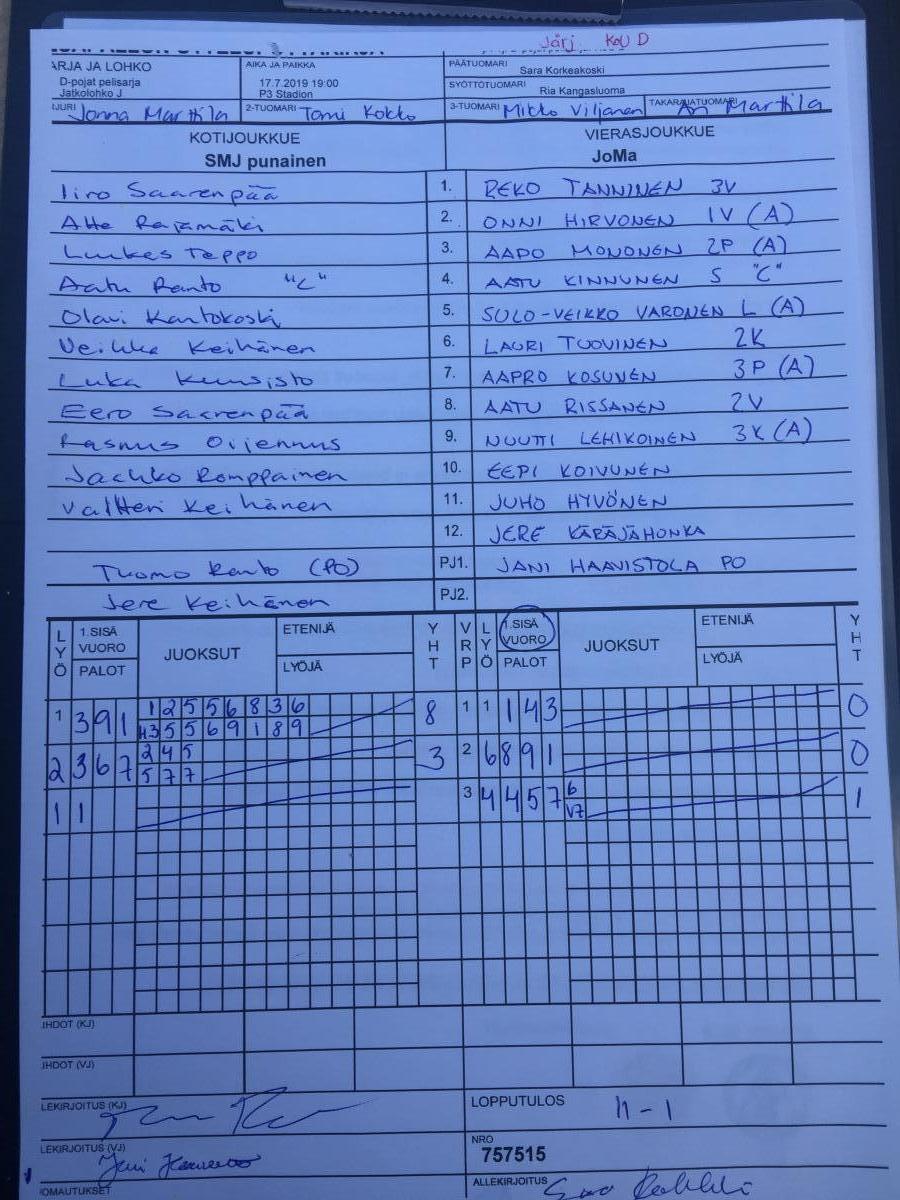 Järj. KoU D
ARJA JA LOHKO
D-pojat pelisarja
Jatkolohko J
AIKA JA PAIKKA
17.7.2019 19:00
P3 Stadion
PÄÄTUOMARI Sara Korkeakoski
SYÖTTÖTUOMARI Ria Kangasluoma
Jonna Marttila
2-TUOMARI Tomi Kokko
3-TUOMARI Mikko Viljanen
TAKARAJATUOMARI Ari Marttila
KOTIJOUKKUE
SMJ punainen
VIERASJOUKKUE
JoMa
Iiro Saarenpää 1. REKO TANNINEN 3V
Atte Rajamäki 2. ONNI HIRVONEN 1V (A)
Luukas Teppo 3. AAPO MONONEN 2P (A)
Aatu Ranto "C" 4. AATU KINNUNEN S "C"
Olavi Kantokoski 5. SULO-VEIKKO VARONEN L (A)
Veikka Keihänen 6. LAURI TUOVINEN 2K
Luka Kuusisto 7. AAPRO KOSUNEN 3P (A)
Eero Saarenpää 8. AATU RISSANEN 2V
Rasmus Oijennus 9. NUUTTI LEHIKOINEN 3K (A)
Jaakko Romppainen 10. EEPI KOIVUNEN
Valtteri Keihänen 11. JUHO HYVÖNEN
12. JERE KÄRÄJÄHONKA
Tuomo Ranto (PO) PJ1. JANI HAAVISTOLA PO
Jere Keihänen PJ2.
LYÖ 1.SISÄ VUORO PALOT JUOKSUT ETENIJÄ LYÖJÄ YHT VRP LYÖ 1.SISÄ VUORO PALOT JUOKSUT ETENIJÄ LYÖJÄ YHT
1 3 9 1 1 2 5 5 6 8 3 6 8 1 1 1 4 3 0
3 5 5 6 9 1 8 9
2 3 6 7 2 4 5 3 2 6 8 9 1 0
5 7 7
1 1 3 4 4 5 7 6 1
V7
(KJ)
(VJ)
LEKIRJOITUS (KJ)
LOPPUTULOS 11 - 1
LEKIRJOITUS (VJ)
NRO
757515
OMAUTUKSET
ALLEKIRJOITUS